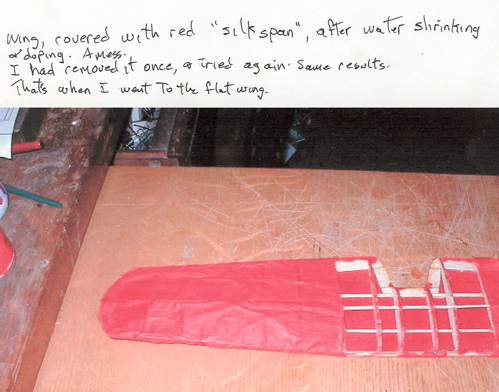 Wing, covered with red "silkspan", after water shrinking
& doping. A mess.
I had removed it once, & tried again. Same results.
That's when I went to the flat wing.